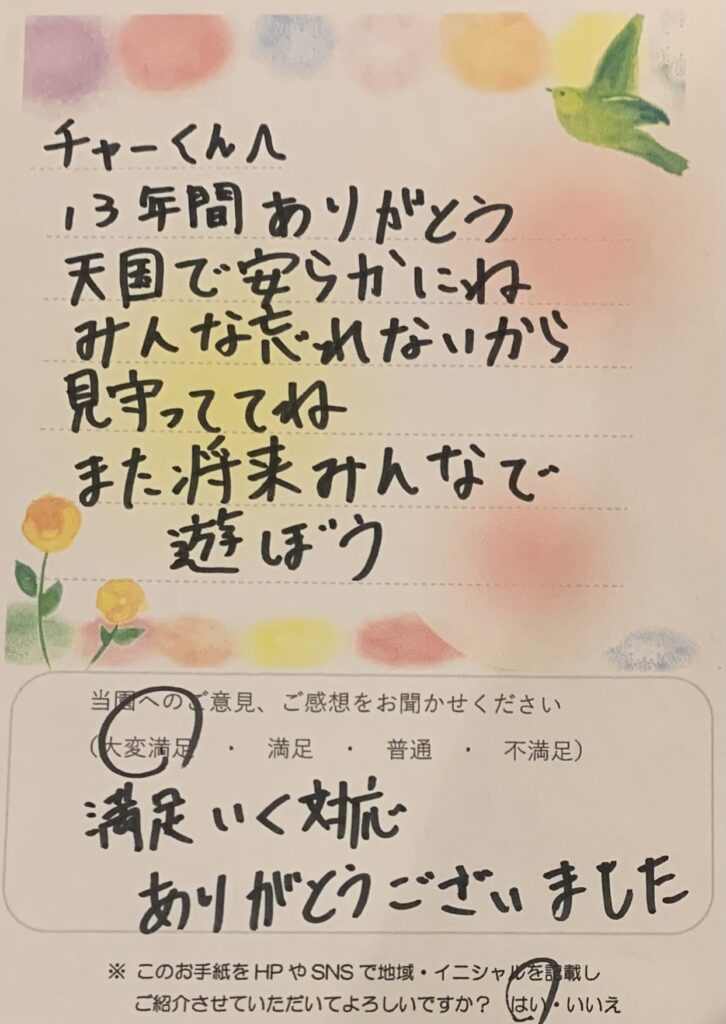 チャーくんへ
13年間ありがとう
天国で安らかにね
みんな忘れないから
見守っててね
また将来みんなで
遊ぼう
当園へのご意見、ご感想をお聞かせください
(大変満足 ・ 満足 ・ 普通 ・ 不満足)
満足いく対応
ありがとうございました
※ このお手紙をHPやSNSで地域・イニシャルを記載し
ご紹介させていただいてよろしいですか? はい・いいえ